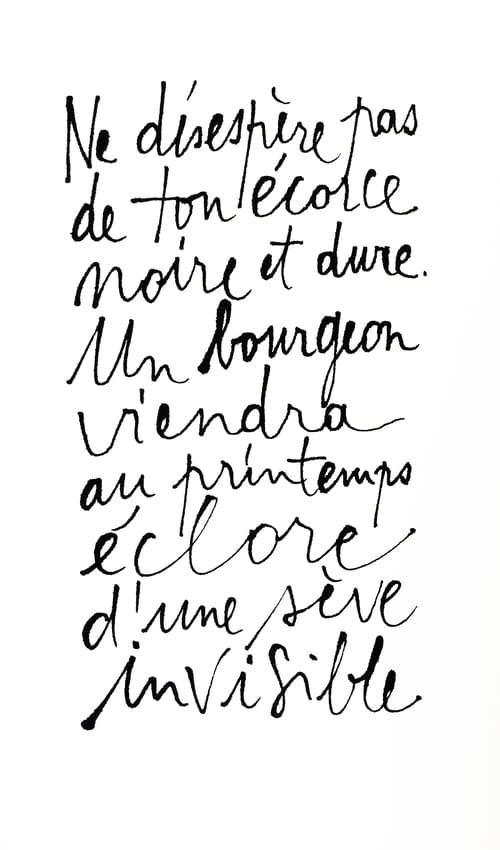 Ne désespère pas
de ton écorce
noire et dure.
Un bourgeon
viendra
au printemps
éclore
d'une sève
invisible